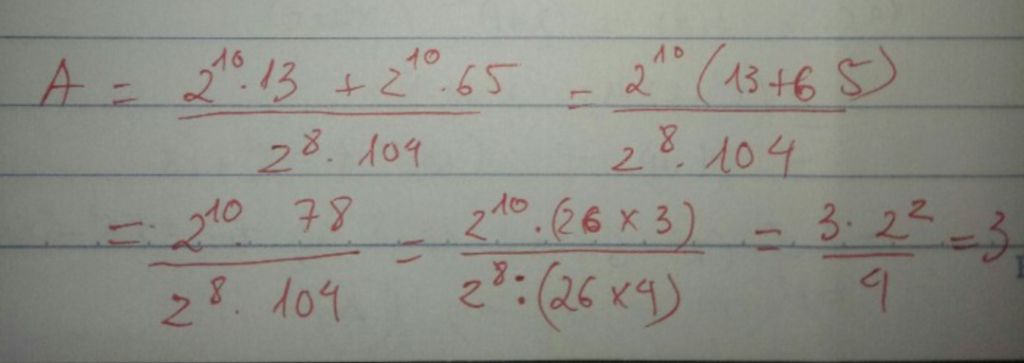 A = \frac{2^{10} \cdot 13 + 2^{10} \cdot 65}{2^8 \cdot 104} = \frac{2^{10} (13+65)}{2^8 \cdot 104}
= \frac{2^{10} \cdot 78}{2^8 \cdot 104} = \frac{2^{10} \cdot (26 \times 3)}{2^8 : (26 \times 4)} = \frac{3 \cdot 2^2}{4} = 3